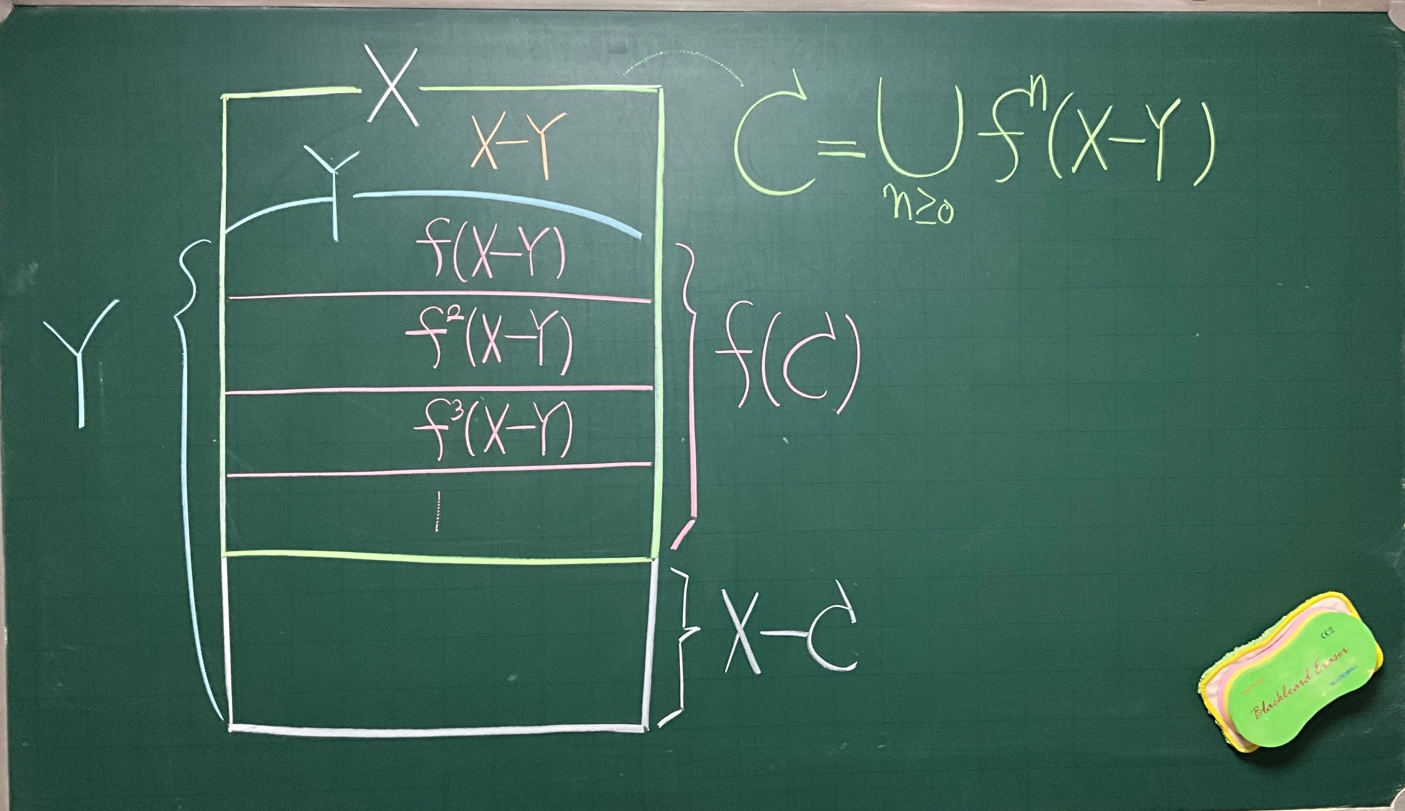 X
X-Y
Y
C = ⋃ fⁿ(X-Y)
n≥0
f(X-Y)
f²(X-Y)
f³(X-Y)
Y
f(C)
X-C
Blackboard Eraser